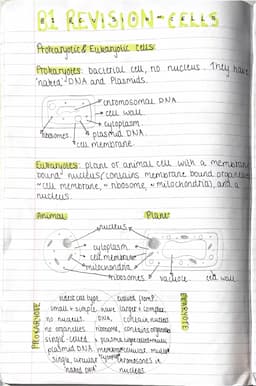 B1 REVISION - CELLS
Prokaryotic & Eukaryotic cells:
Prokaryotes: bacterial cell, no nucleus. They have
"naked" DNA and Plasmids.
chromosomal DNA
cell wall
cytoplasm
ribosomes
plasmid DNA
cell membrane
Eukaryotes: plant or animal cell with a membrane
bound nucleus/contains membrane bound
~cell membrane, ~ribosome, ~mitochondria), and a
nucleus.
Animal
Plant
nucleus
cytoplasm
cell membrane
mitochondria
ribosomes
vacuole
cell wall
PROKARYOTE
small + simple
no nucleus
no organelles
single-celled
plasmid DNA
single, circular
"naked DNA"
have
DNA,
ribosome,
cytoplasm
larger + complex
contain nucleus
contains organelles
chromosomes in
nucleus